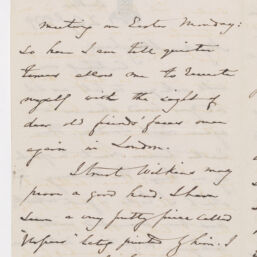 meeting on Easter Monday:
so here I am till quieter
times allow me to
myself with the sight of
dear old friends' faces once
again in London.
I trust Wilkins may
prove a good hand. I have
seen a very pretty piece called
"Vespers" being printed of him. I